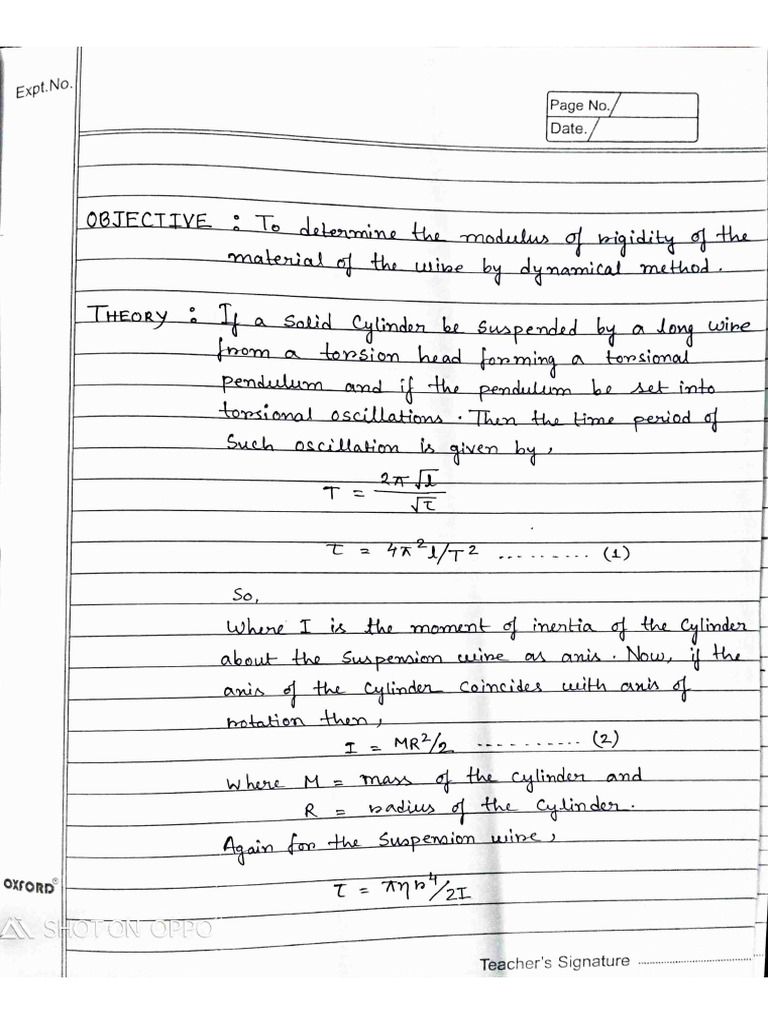 Expt.No.
Page No.
Date.
OBJECTIVE : To determine the modulus of rigidity of the
material of the wire by dynamical method.
THEORY : If a solid cylinder be suspended by a long wire
from a torsion head forming a torsional
pendulum and if the pendulum be set into
torsional oscillations. Then the time period of
Such oscillation is given by,
T = 2π√l/√τ
τ = 4π²l/T² .......... (1)
So,
Where I is the moment of inertia of the cylinder
about the suspension wire as axis. Now, if the
axis of the cylinder coincides with axis of
rotation then,
I = MR²/2 ........... (2)
Where M = mass of the cylinder and
R = radius of the cylinder.
Again for the suspension wire,
τ = πηr⁴/2I
OXFORD®
SHOT ON OPPO
Teacher's Signature ..............................